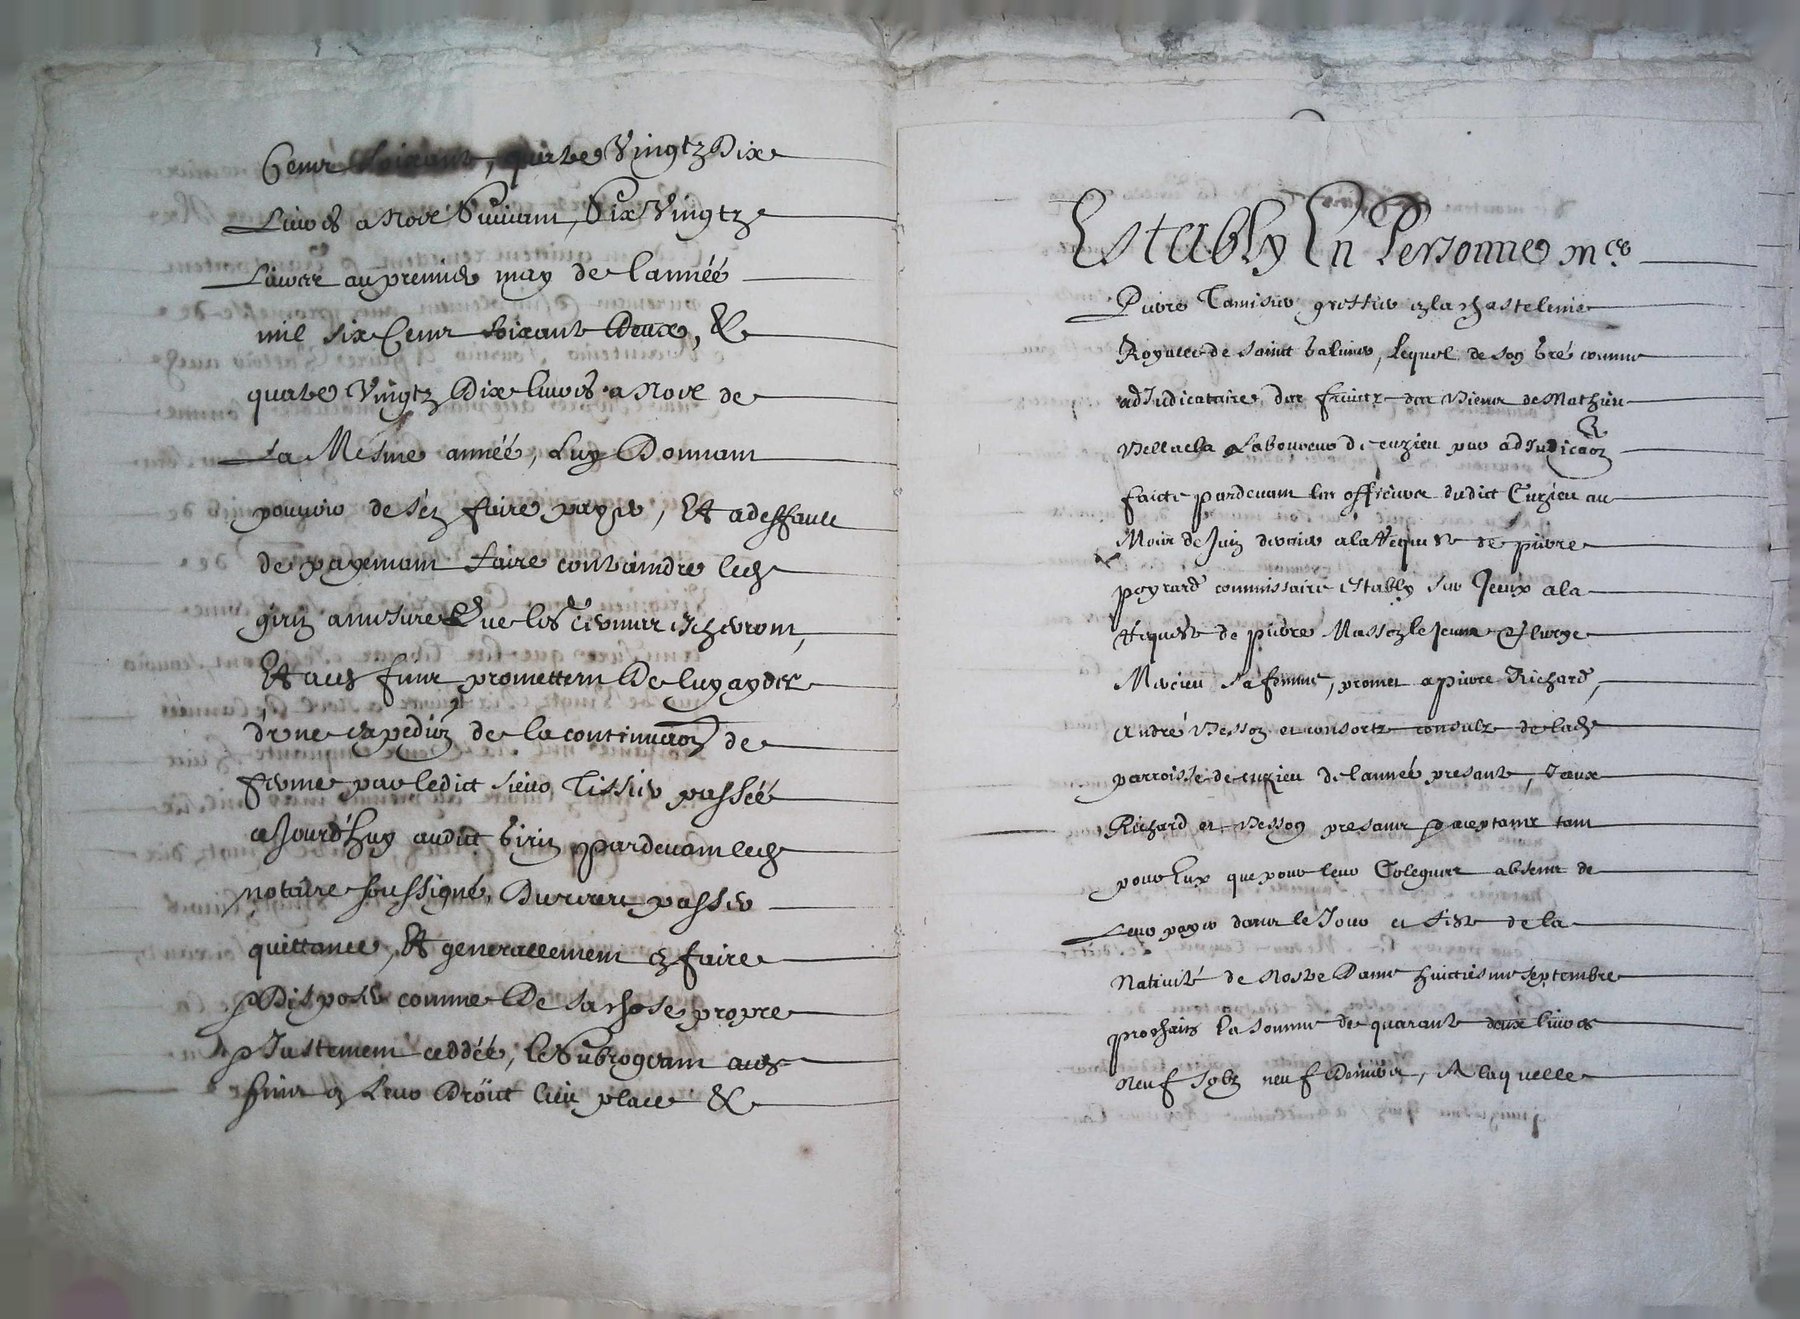 Cent soixante, quatre Vingtz Dix
Livres a Noel Suivant, Six Vingtz
Livres au premier may de lannéé
mil six Cent soixante Deux, &
quatre Vingtz Dix livres a Noel de
La Mesme annéé, Luy Donnant
pouvoir de s'en faire payer, Et a deffault
de payement faire contraindre led
girin a mesure Que les termes escherront,
Et aux fins promettent De luy ayder
d'une expedion de la continuaon de
ferme par ledict sieur Tissier passéé
cejourd'huy audict pardevant led
notaire soussigné, passer
quittance, Et generallement en faire
& Disposer comme De sa chose propre
& Justement ceddéé, le Subrogeant aux
fins en Leur Droict lieu place &
Estably En Personne me
Pierre Tamisier greffier en la chastelenie
Royalle de sainct galmier, Lequel de son gré comme
adJudicataire des fruictz des biens de Mathieu
Laboureur de cuzieu par adJudicaon
faicte pardevant les officiers dudict Cuzieu au
Mois de Juin dernier a la Requeste de pierre
poyrard commissaire estably sur Iceux a la
Requeste de pierre Masson le Jeune &
sa femme, promet a pierre Richard,
André Besson et consortz consulz de lad
parroisse de cuzieu de lannéé presante, Iceux
Richard et Besson presantz & aceptantz tant
pour Eux que pour leur Colegues absentz de
Leur payer dans le Jour et feste de la
Nativité de Nostre Dame huictiesme septembre
prochain la somme de quarante deux livres
neuf solz neuf deniers, A laquelle